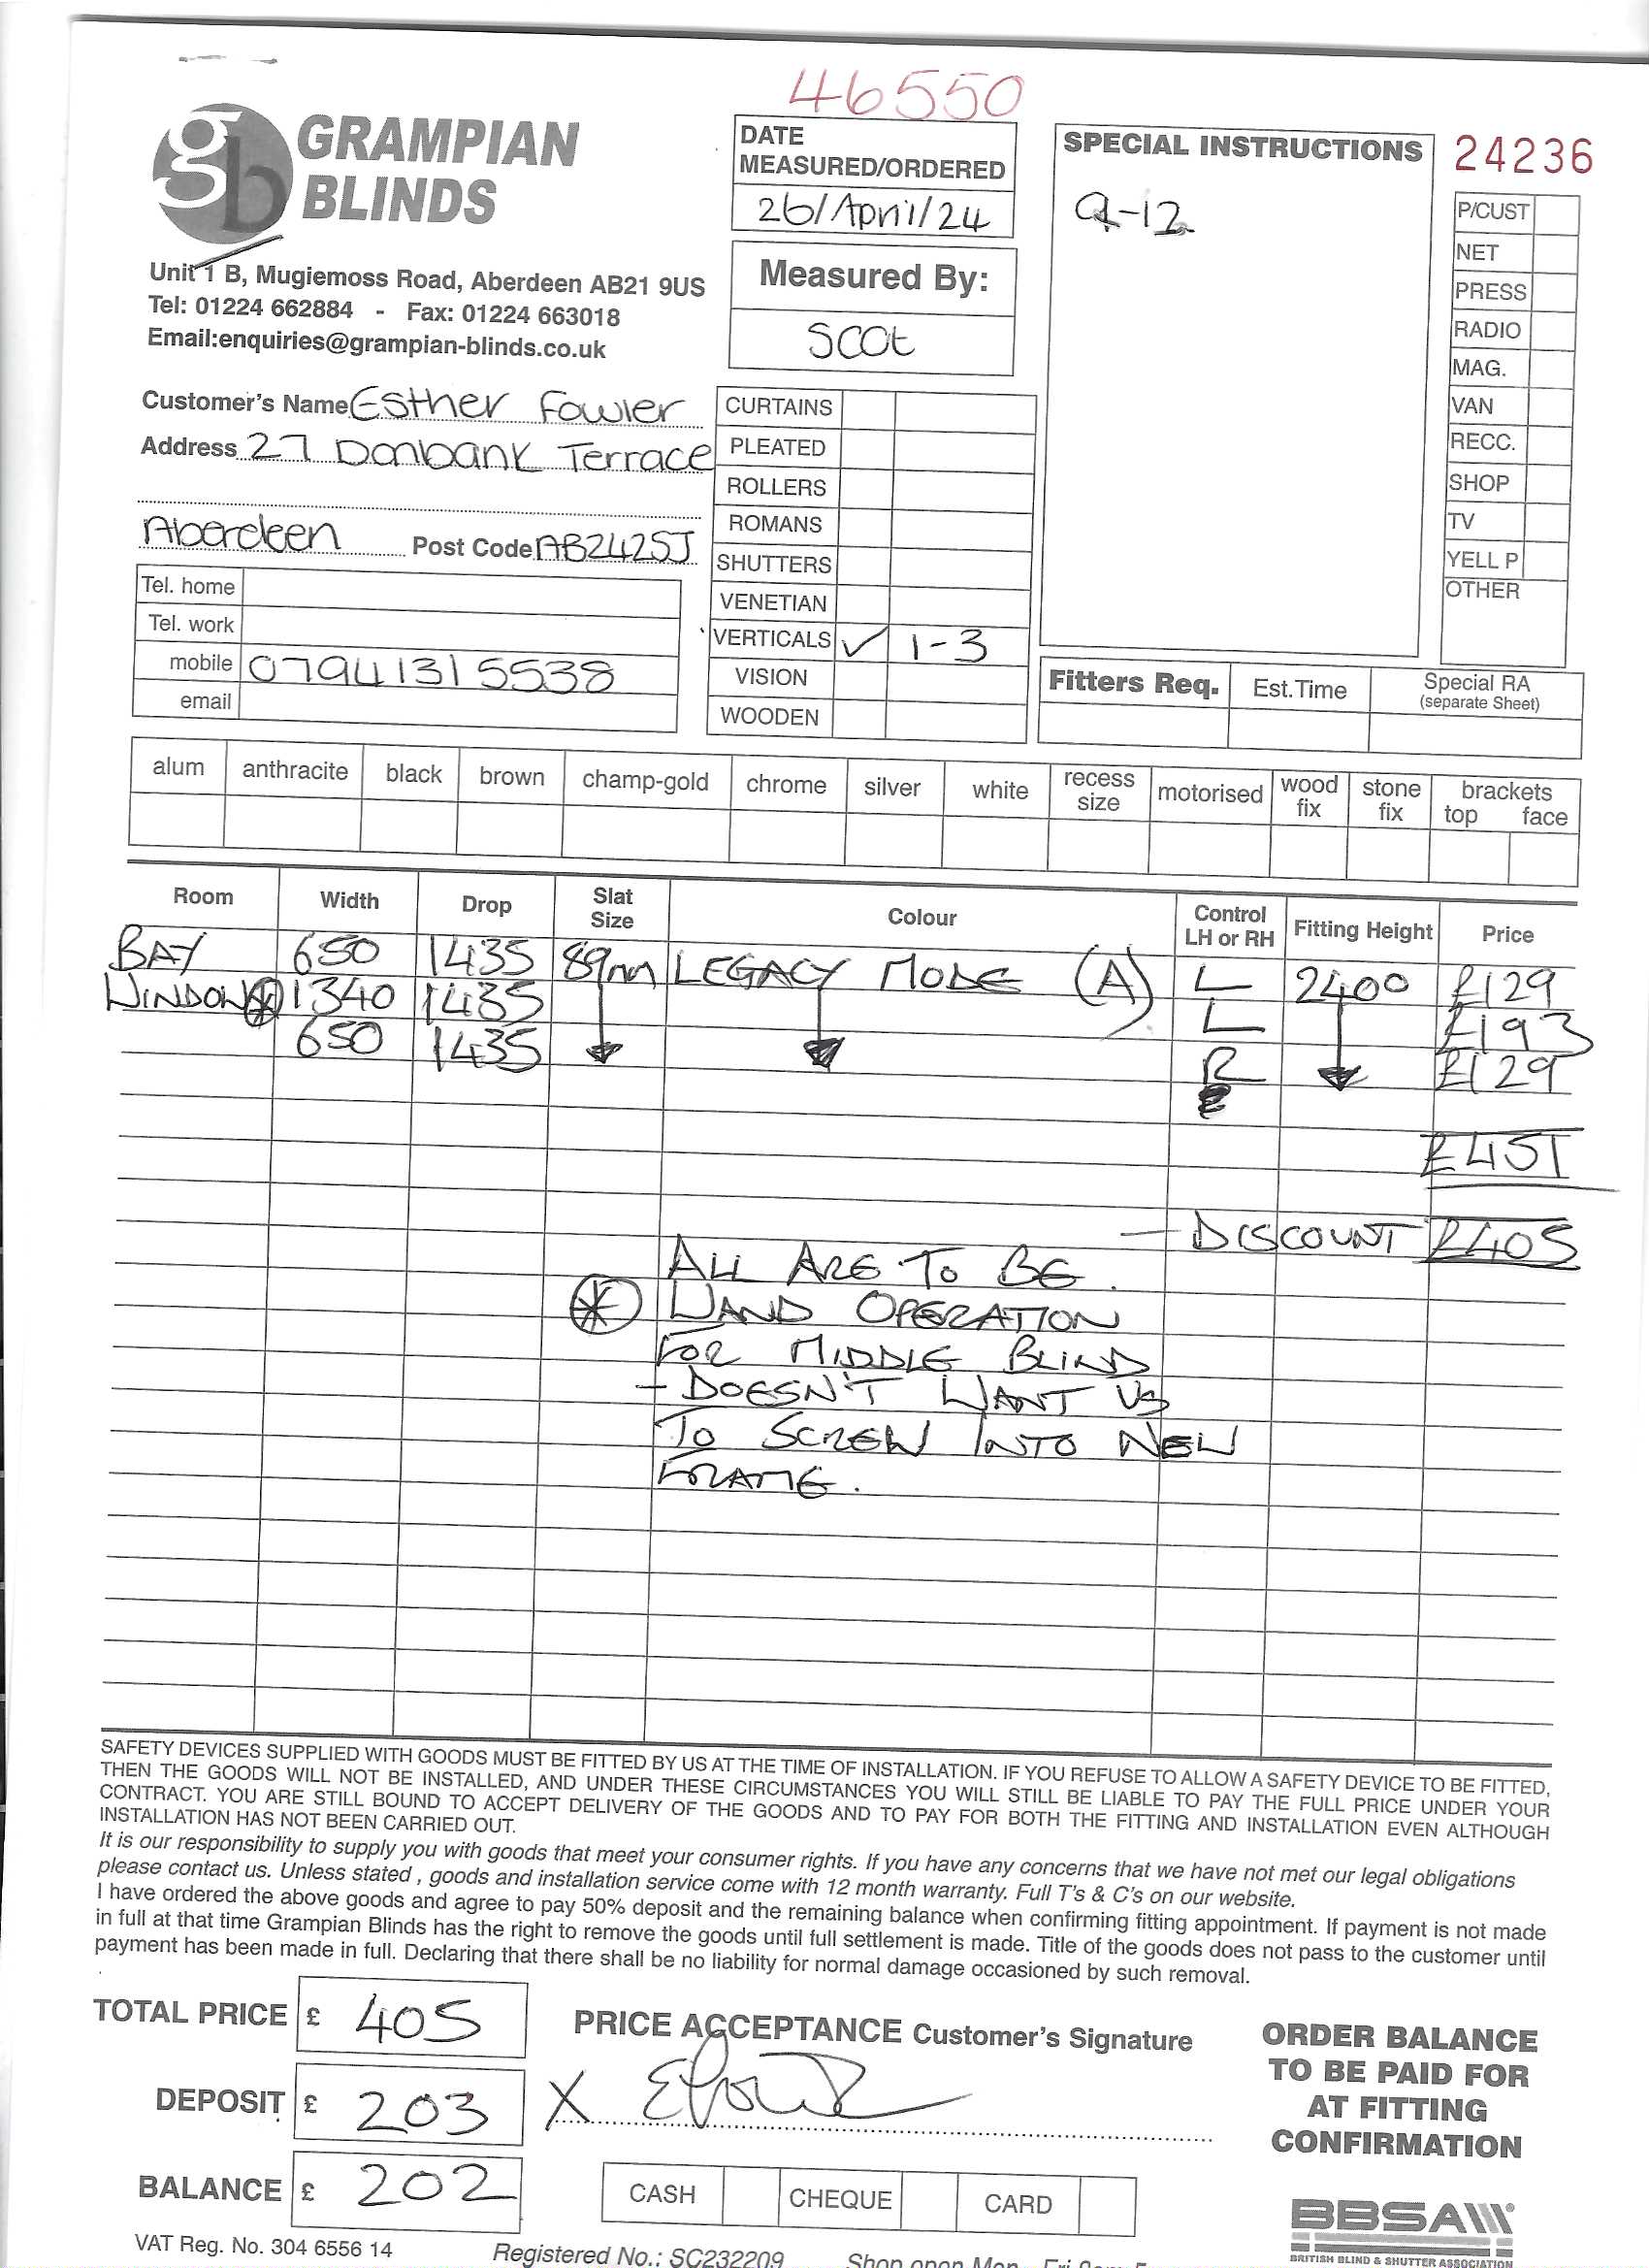 46550
GRAMPIAN
BLINDS
Unit 1 B, Mugiemoss Road, Aberdeen AB21 9US
Tel: 01224 662884 - Fax: 01224 663018
Email:enquiries@grampian-blinds.co.uk
DATE
MEASURED/ORDERED
26/April/24
Measured By:
Scot
SPECIAL INSTRUCTIONS
9-12
24236
P/CUST
NET
PRESS
RADIO
MAG.
VAN
RECC.
SHOP
TV
YELL P
OTHER
Customer's Name Esther Fowler
Address 27 Donbank Terrace
Aberdeen Post Code AB242SJ
Tel. home
Tel. work
mobile 07941315538
email
CURTAINS
PLEATED
ROLLERS
ROMANS
SHUTTERS
VENETIAN
VERTICALS ✓ 1-3
VISION
WOODEN
Fitters Req. Est.Time Special RA
(separate Sheet)
alum anthracite black brown champ-gold chrome silver white recess size motorised wood fix stone fix brackets top face
Room Width Drop Slat Size Colour Control LH or RH Fitting Height Price
BAY 650 1435 89mm LEGACY MODE (A) L 2400 £129
WINDOW * 1340 1435 L £193
650 1435 R £129
£451
- DISCOUNT £405
ALL ARE TO BE
* WAND OPERATION
FOR MIDDLE BLIND
- DOESN'T WANT US
TO SCREW INTO NEW
FRAME.
SAFETY DEVICES SUPPLIED WITH GOODS MUST BE FITTED BY US AT THE TIME OF INSTALLATION. IF YOU REFUSE TO ALLOW A SAFETY DEVICE TO BE FITTED,
THEN THE GOODS WILL NOT BE INSTALLED, AND UNDER THESE CIRCUMSTANCES YOU WILL STILL BE LIABLE TO PAY THE FULL PRICE UNDER YOUR
CONTRACT. YOU ARE STILL BOUND TO ACCEPT DELIVERY OF THE GOODS AND TO PAY FOR BOTH THE FITTING AND INSTALLATION EVEN ALTHOUGH
INSTALLATION HAS NOT BEEN CARRIED OUT.
It is our responsibility to supply you with goods that meet your consumer rights. If you have any concerns that we have not met our legal obligations
please contact us. Unless stated , goods and installation service come with 12 month warranty. Full T's & C's on our website.
I have ordered the above goods and agree to pay 50% deposit and the remaining balance when confirming fitting appointment. If payment is not made
in full at that time Grampian Blinds has the right to remove the goods until full settlement is made. Title of the goods does not pass to the customer until
payment has been made in full. Declaring that there shall be no liability for normal damage occasioned by such removal.
TOTAL PRICE £ 405
DEPOSIT £ 203
BALANCE £ 202
PRICE ACCEPTANCE Customer's Signature
X
CASH CHEQUE CARD
ORDER BALANCE
TO BE PAID FOR
AT FITTING
CONFIRMATION
BBSA
BRITISH BLIND & SHUTTER ASSOCIATION
VAT Reg. No. 304 6556 14 Registered No.: SC232209